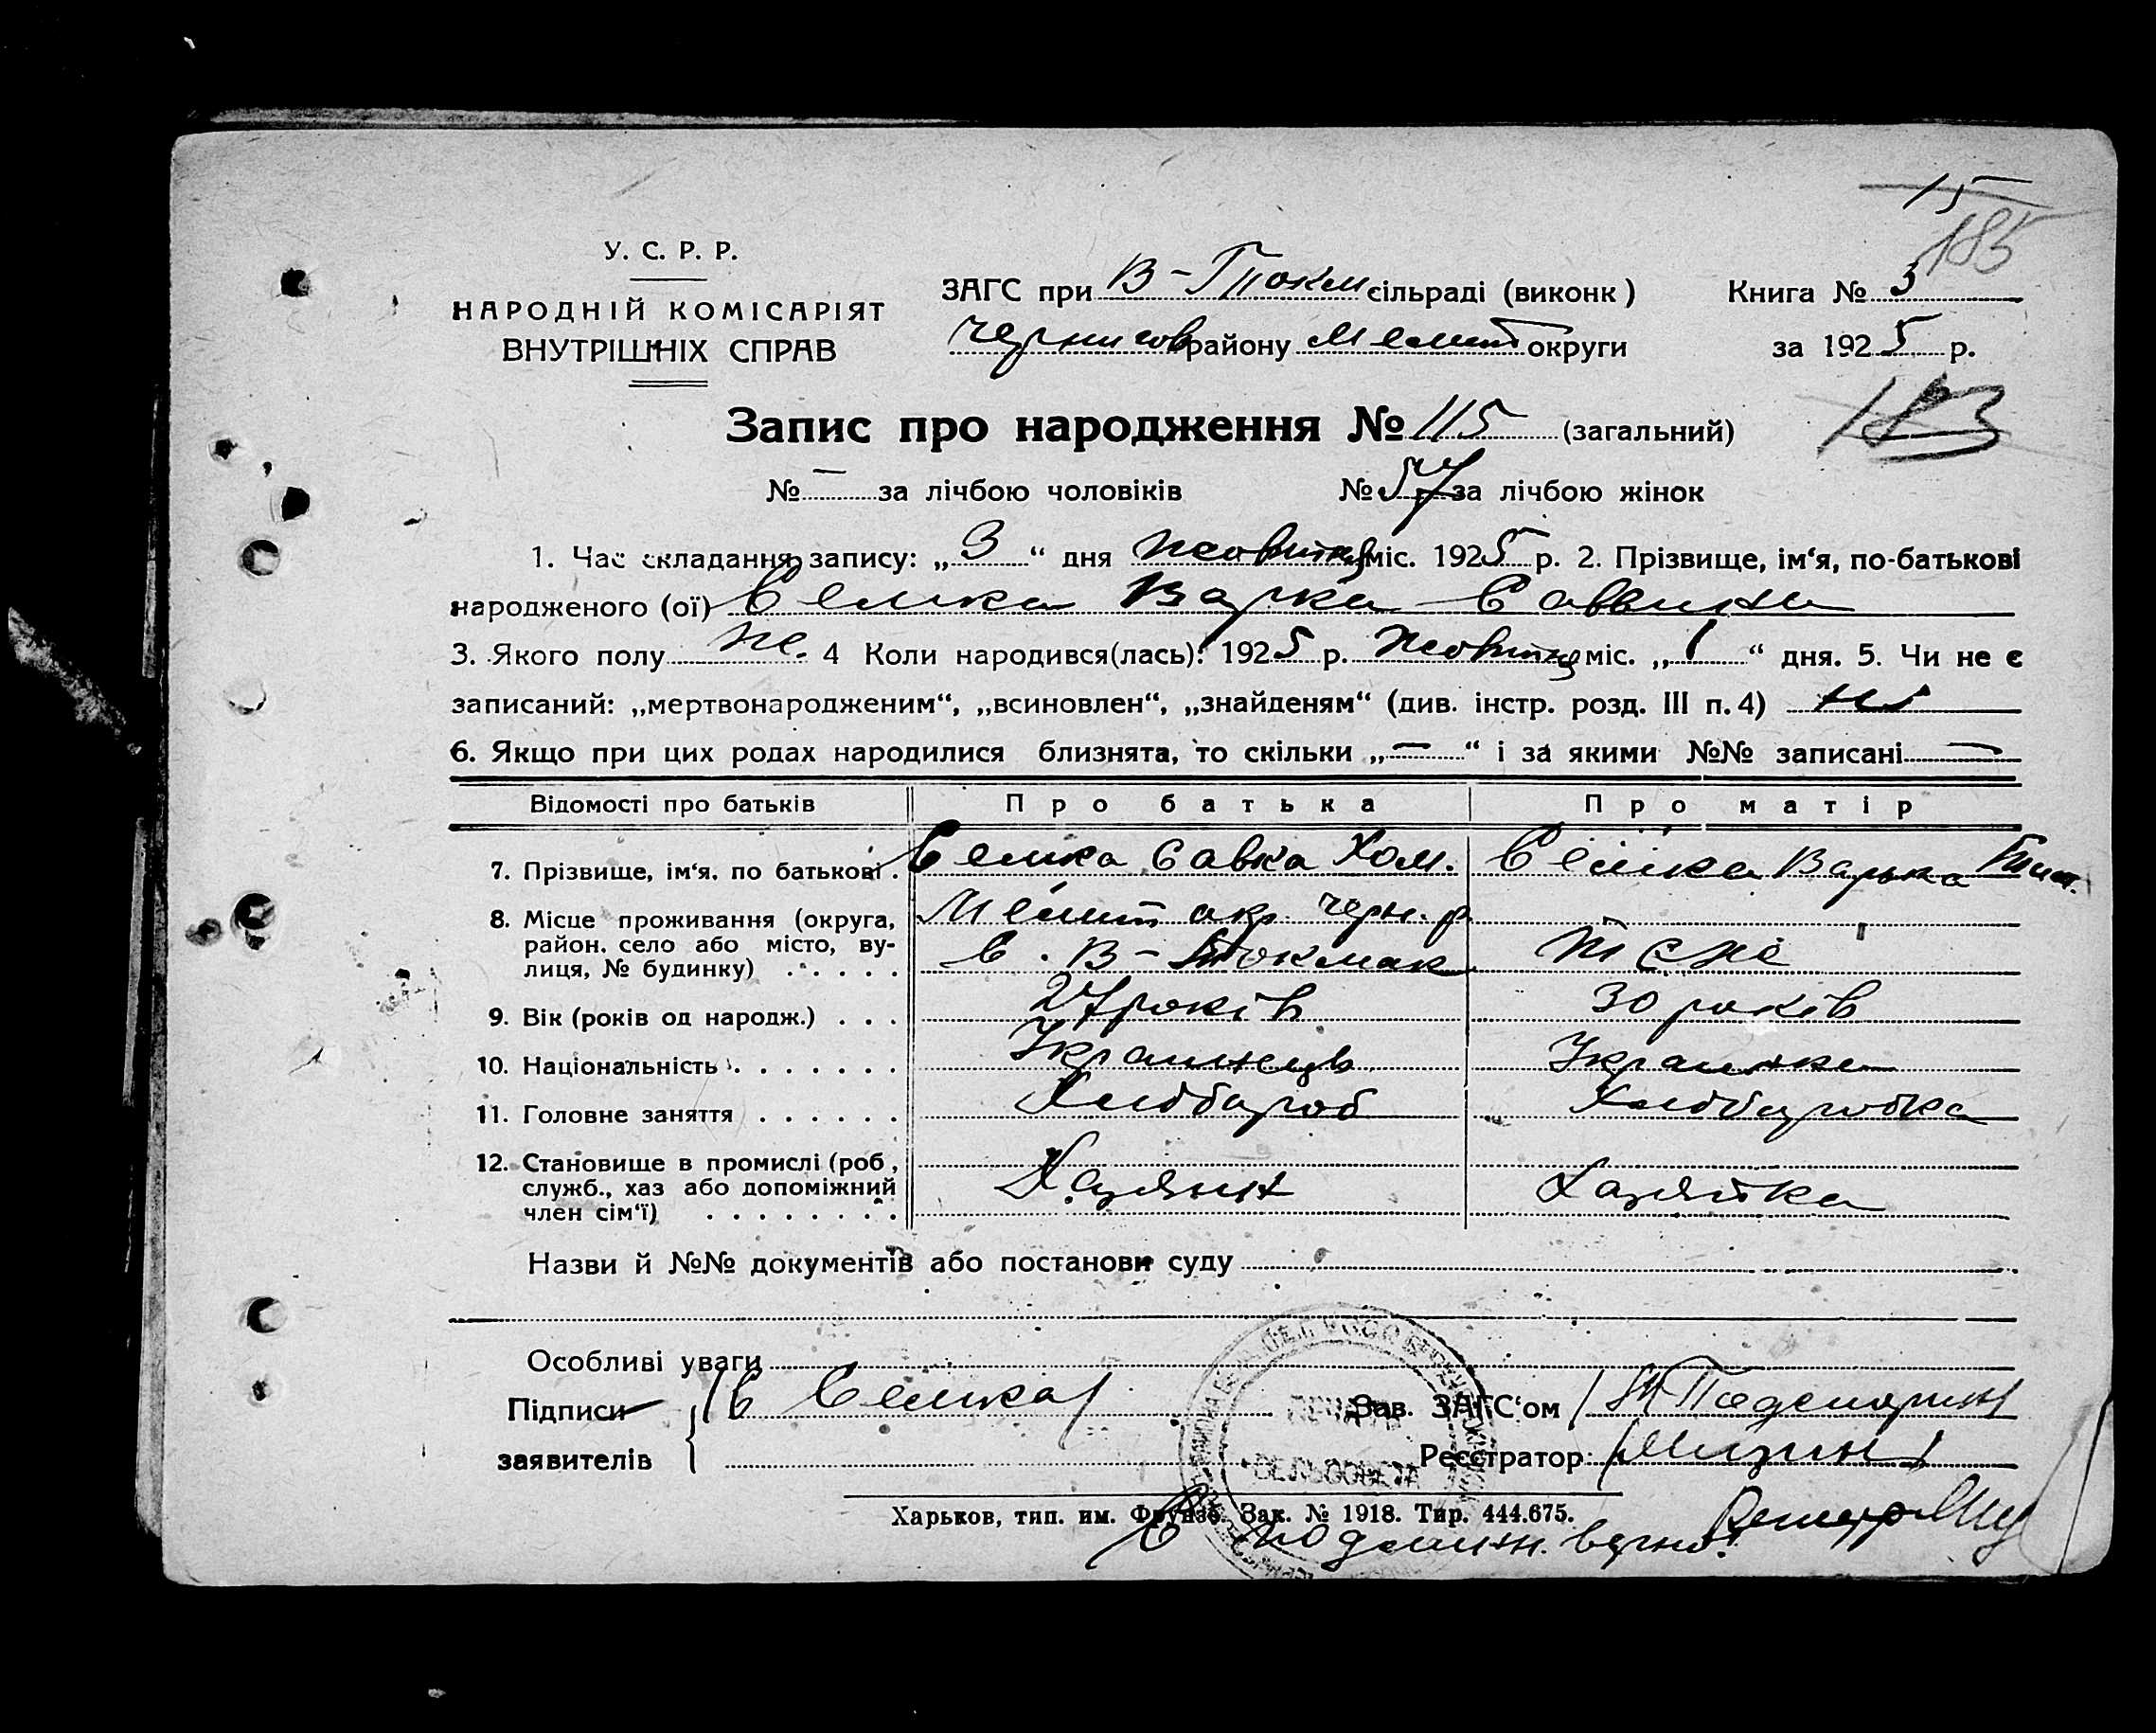 15
185
У. С. Р. Р.
НАРОДНІЙ КОМІСАРІЯТ
ВНУТРІШНІХ СПРАВ
ЗАГС при В-Токм сільраді (виконк) Книга № 3
Чернигов району Мелит округи за 1925 р.
183
Запис про народження № 115 (загальний)
№ — за лічбою чоловіків № 57 за лічбою жінок
1. Час складання запису: „3“ дня жовтня міс. 1925 р. 2. Прізвище, ім‘я, по-батькові
народженого (ої) Семка Варка Саввична
3. Якого полу ж. 4 Коли народився(лась): 1925 р. жовтня міс. „1“ дня. 5. Чи не є
записаний: „мертвонародженим“, „всиновлен“, „знайденям“ (див. інстр. розд. III п. 4) ні
6. Якщо при цих родах народилися близнята, то скільки „—“ і за якими №№ записані —
Відомості про батьків Про батька Про матір
7. Прізвище, ім‘я, по батькові . Семка Савка Хом. Семка Варька Тим.
8. Місце проживання (округа, Мелит окр. Черн. р.
район, село або місто, ву- с. В-Токмак теж
лиця, № будинку) . . . . .
9. Вік (років од народж.) . . . 27 років 30 років
10. Національність . . . . . . . Українець Українка
11. Головне заняття . . . . . . Хлібороб Хліборобка
12. Становище в промислі (роб,
служб., хаз або допоміжний Хазяин Хазяйка
член сім‘ї) . . . . . . . .
Назви й №№ документів або постанови суду
Особливі уваги
Підписи заявителів { (С Семка) Зав. ЗАГС‘ом
Реєстратор: (Мизин)
СЕЛЬСОВЕТА
Харьков, тип. им. Фрунзе. Зак. № 1918. Тир. 444.675.
С подлин. верно: